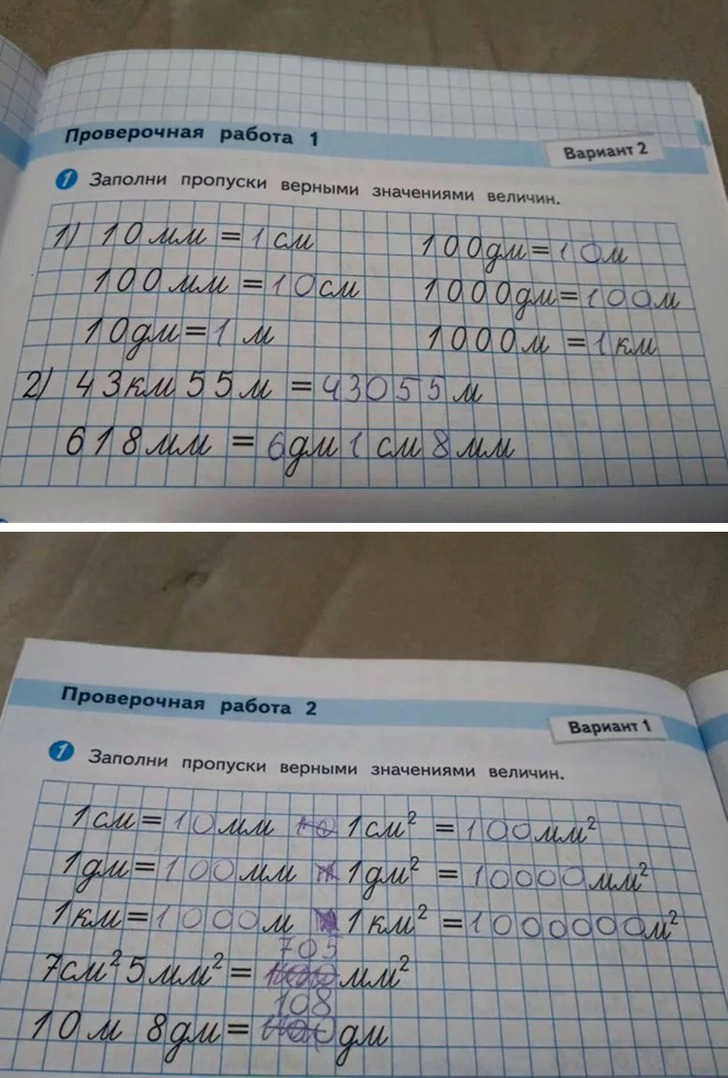 Проверочная работа 1
Вариант 2
1 Заполни пропуски верными значениями величин.
1) 10 мм = 1 см 100 дм = 10 м
100 мм = 10 см 1000 дм = 100 м
10 дм = 1 м 1000 м = 1 км
2) 43 км 55 м = 43055 м
618 мм = 6 дм 1 см 8 мм
Проверочная работа 2
Вариант 1
1 Заполни пропуски верными значениями величин.
1 см = 10 мм 10 1 см² = 100 мм²
1 дм = 100 мм 1 дм² = 10000 мм²
1 км = 1000 м 1 км² = 1000000 м²
705
7 см² 5 мм² = мм²
108
10 м 8 дм = дм